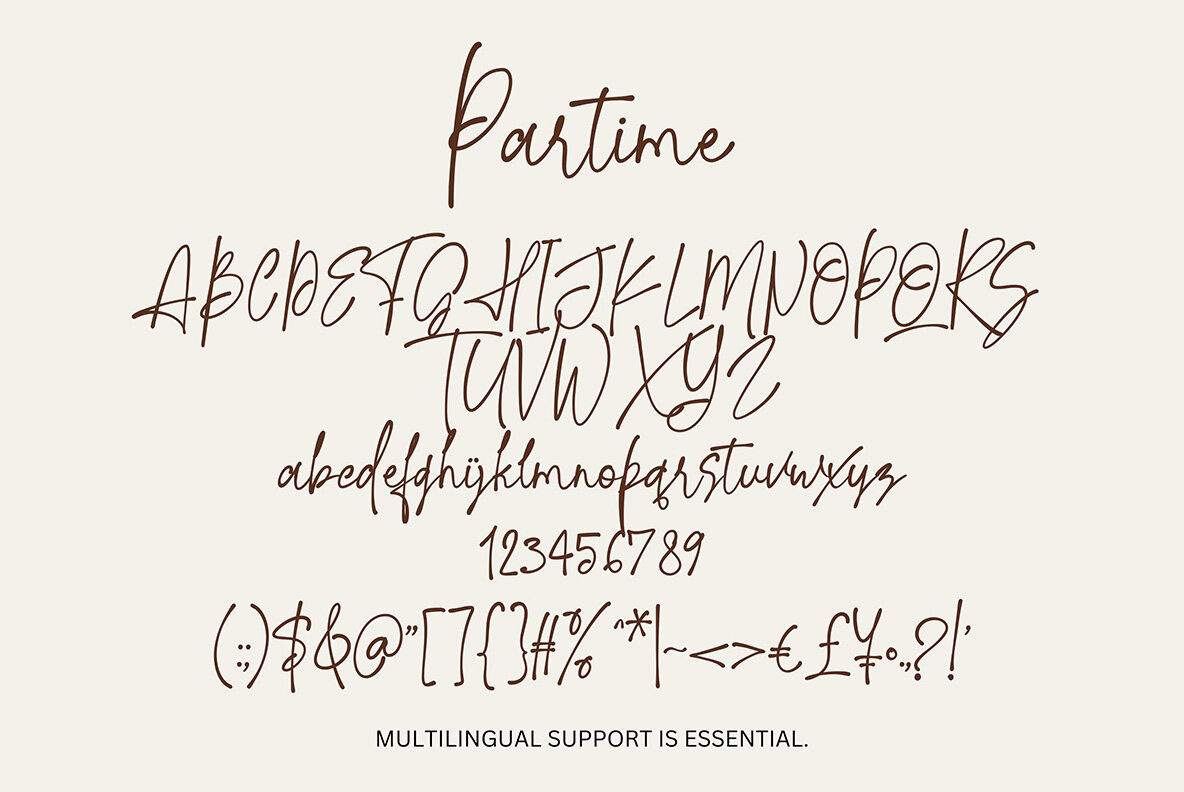 Partime
ABCDEFGHIJKLMNOPQRS
TUVWXYZ
abcdefghijklmnopqrstuvwxyz
123456789
(:;)$&@”[]{}#%^*|~<>€£¥°.,?!’
MULTILINGUAL SUPPORT IS ESSENTIAL.